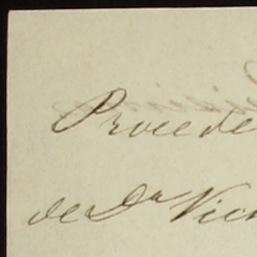 Procede
de Dª Vic